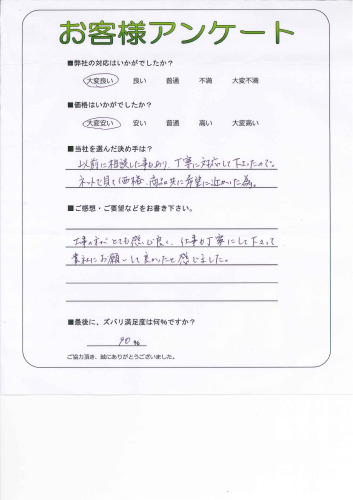 お客様アンケート
■弊社の対応はいかがでしたか？
大変良い 良い 普通 不満 大変不満
■価格はいかがでしたか？
大変安い 安い 普通 高い 大変高い
■当社を選んだ決め手は？
以前に相談した事もあり、丁寧に対応して下さったので。
ネットで見て価格、商品共に希望に近かった為。
■ご感想・ご要望などをお書き下さい。
工事の方がとても感じ良く、仕事も丁寧にして下さって
貴社にお願いして良かったと感じました。
■最後に、ズバリ満足度は何%ですか？
90%
ご協力頂き、誠にありがとうございました。